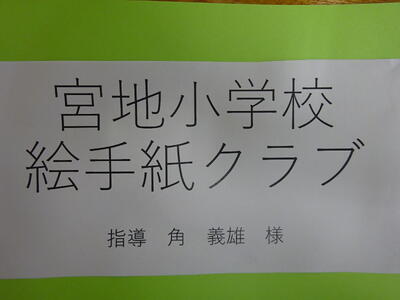 宮地小学校
絵手紙クラブ
指導　角　義雄　様